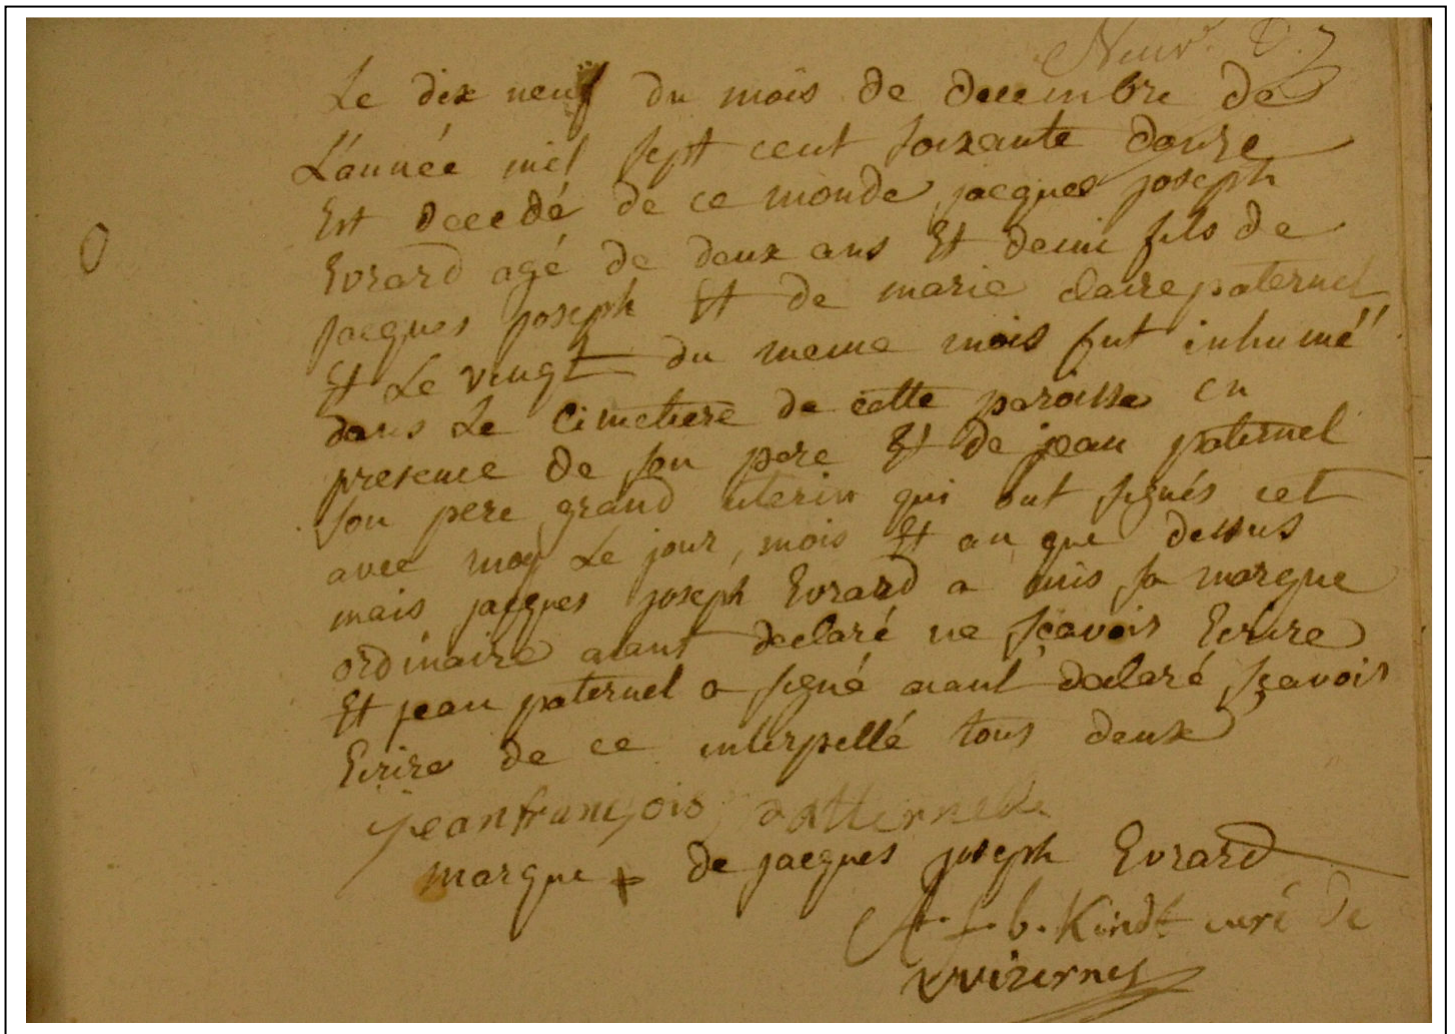 Le dix neuf du mois de decembre de
L'année mil sept cent soixante douze
Est decedé de ce monde jacques joseph
Evrard agé de deux ans Et demi fils de
jacques joseph Et de marie claire paternel
Et Le vingt du meme mois fut inhumé
dans Le Cimetiere de cette paroisse en
presence de son pere Et de jean paternel
son pere grand uterin qui ont signés cet
avec moy Le jour, mois Et an que dessus
mais jacques joseph Evrard a mis sa marque
ordinaire aiant declaré ne sçavoir Ecrire
Et jean paternel a signé aiant declaré sçavoir
Ecrire de ce interpellé tous deux
jean françois patternelle
marque + de jacques joseph Evrard
A. f. b. Kindt curé de
wizernes